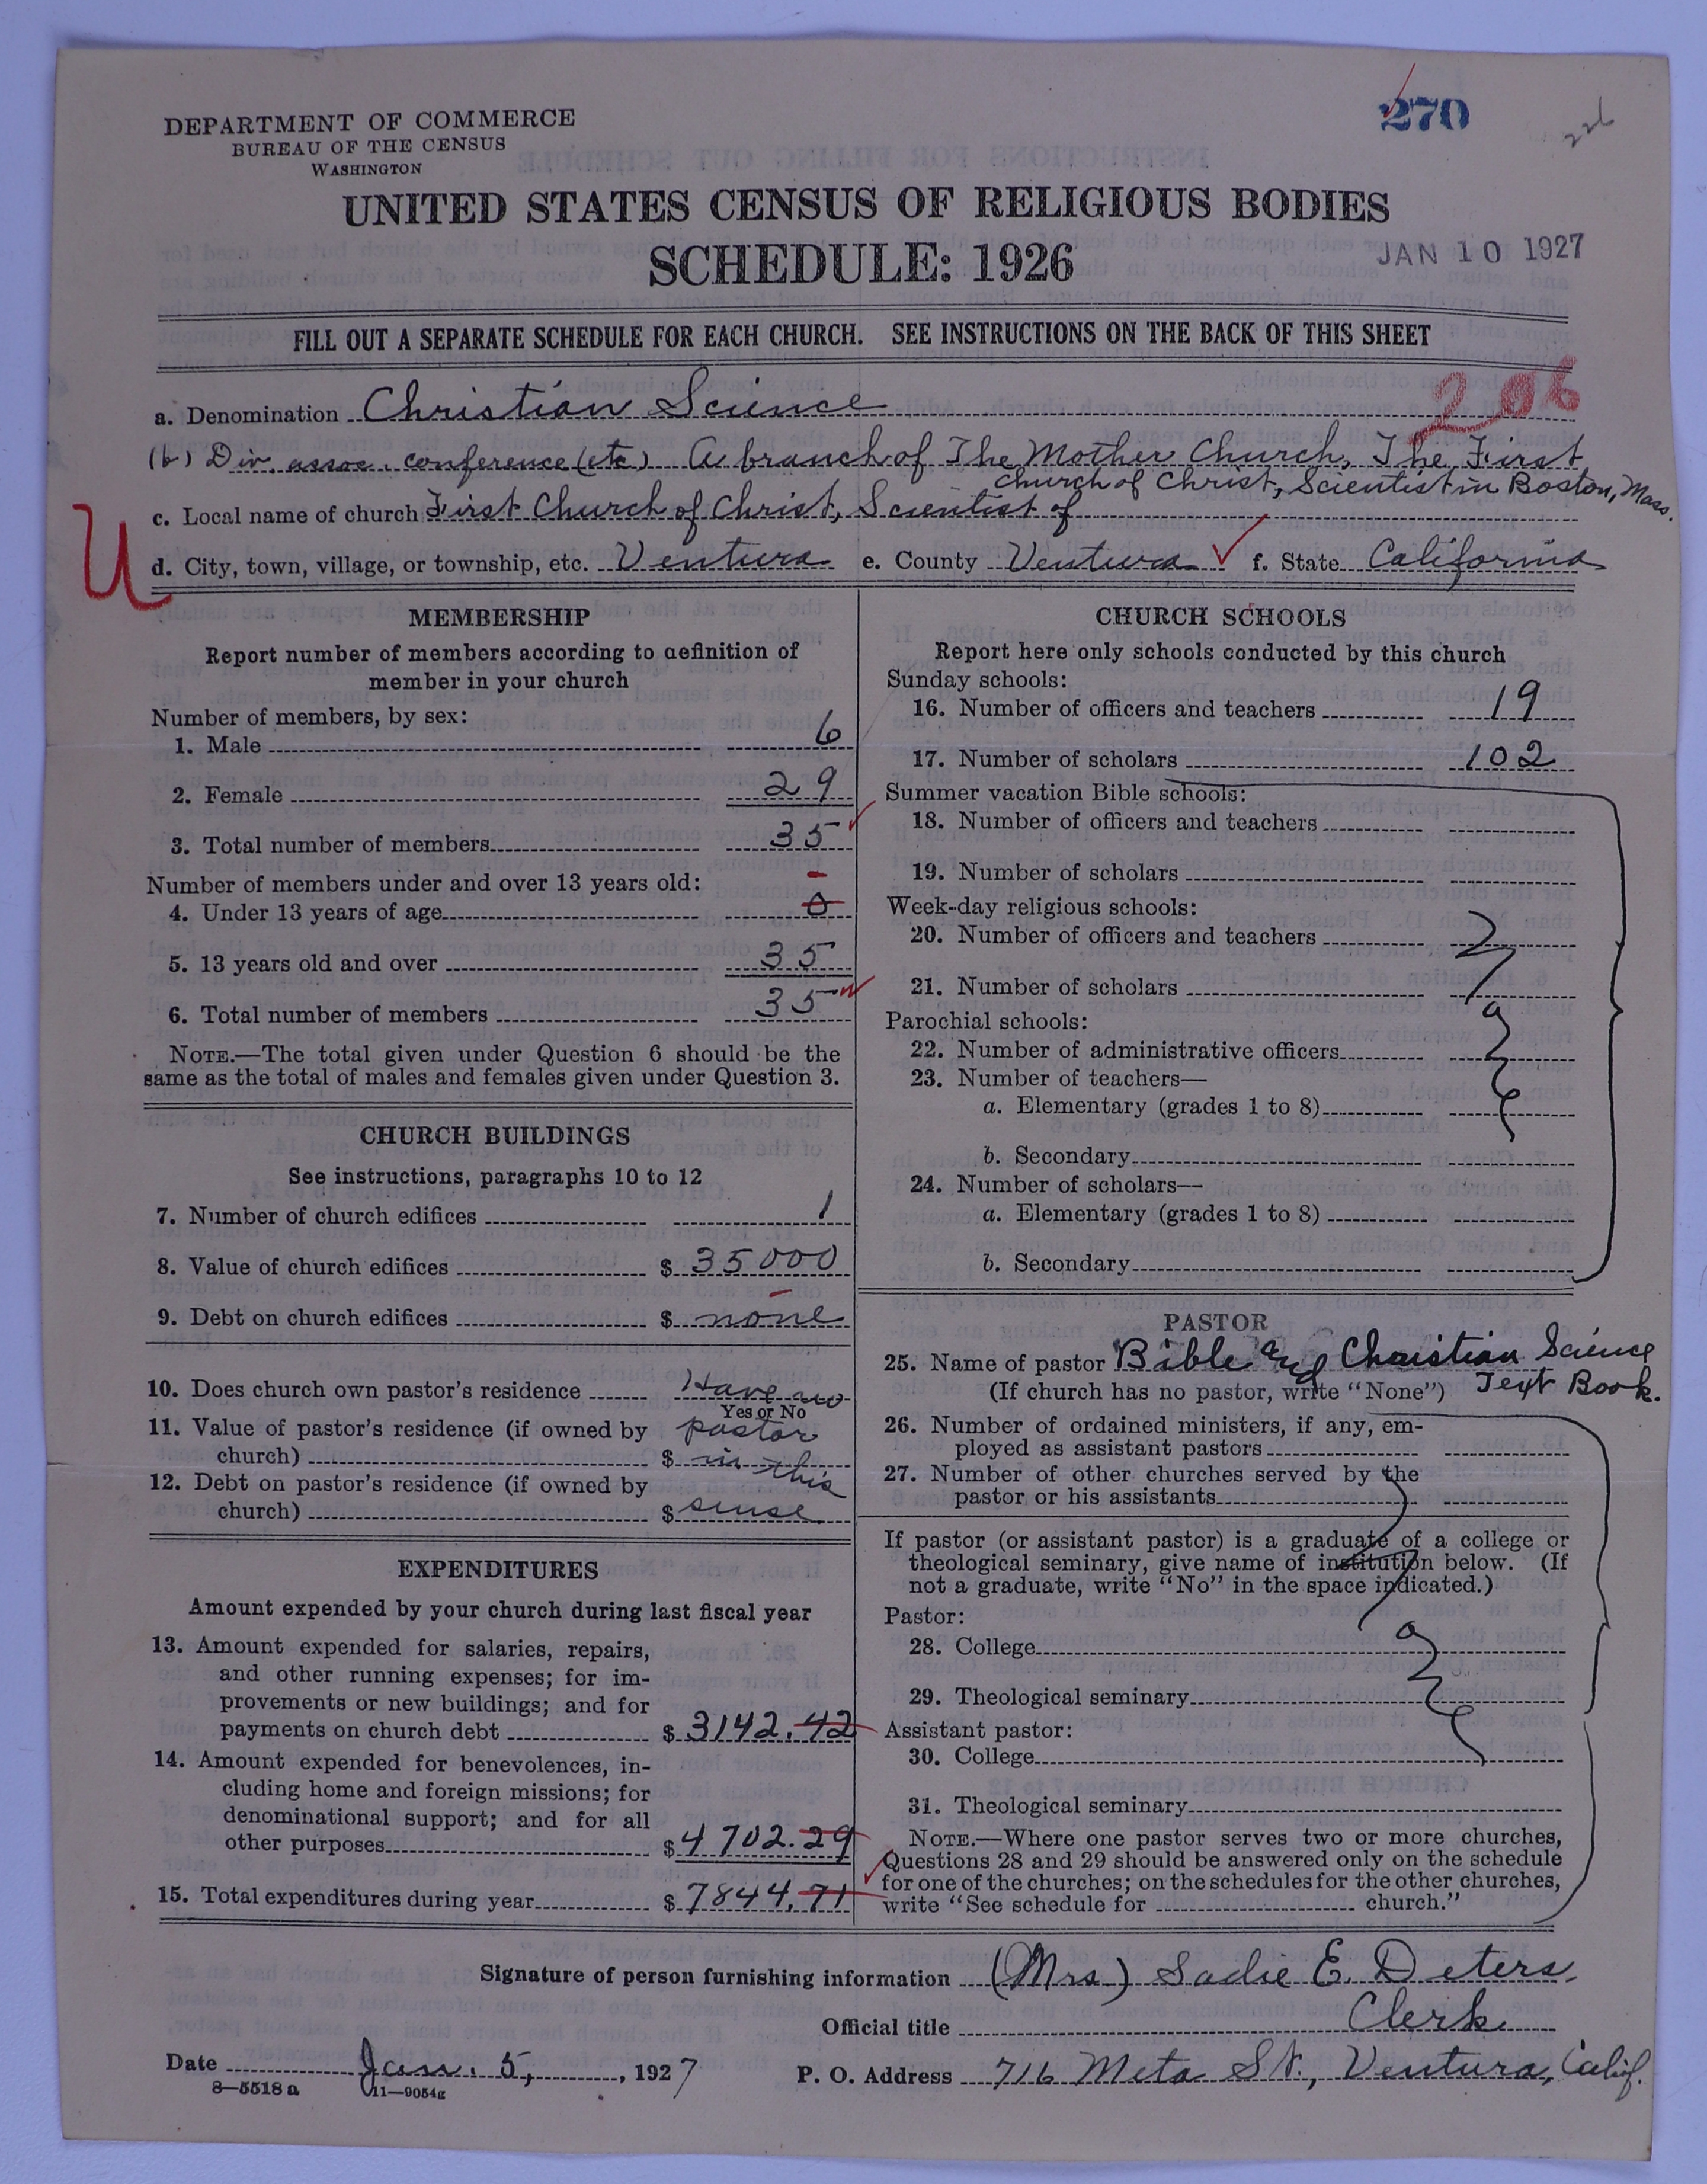 270
226
DEPARTMENT OF COMMERCE
BUREAU OF THE CENSUS
WASHINGTON
UNITED STATES CENSUS OF RELIGIOUS BODIES
SCHEDULE: 1926
JAN 10 1927
FILL OUT A SEPARATE SCHEDULE FOR EACH CHURCH. SEE INSTRUCTIONS ON THE BACK OF THIS SHEET
a. Denomination Christian Science
(b) Div. assoc. conference (etc) A branch of The Mother Church, The First
Church of Christ, Scientist in Boston, Mass.
c. Local name of church First Church of Christ, Scientist of
U
d. City, town, village, or township, etc. Ventura e. County Ventura f. State California
MEMBERSHIP
Report number of members according to definition of
member in your church
Number of members, by sex:
1. Male 6
2. Female 29
3. Total number of members 35
Number of members under and over 13 years old:
4. Under 13 years of age 0
5. 13 years old and over 35
6. Total number of members 35
NOTE.—The total given under Question 6 should be the
same as the total of males and females given under Question 3.
CHURCH BUILDINGS
See instructions, paragraphs 10 to 12
7. Number of church edifices 1
8. Value of church edifices $ 35000
9. Debt on church edifices $ none
10. Does church own pastor's residence Have no
Yes or No
11. Value of pastor's residence (if owned by pastor
church) $ in this
12. Debt on pastor's residence (if owned by
church) $ sense
EXPENDITURES
Amount expended by your church during last fiscal year
13. Amount expended for salaries, repairs,
and other running expenses; for im-
provements or new buildings; and for
payments on church debt $ 3142.42
14. Amount expended for benevolences, in-
cluding home and foreign missions; for
denominational support; and for all
other purposes $ 4702.29
15. Total expenditures during year $ 7844.71
CHURCH SCHOOLS
Report here only schools conducted by this church
Sunday schools:
16. Number of officers and teachers 19
17. Number of scholars 102
Summer vacation Bible schools:
18. Number of officers and teachers
19. Number of scholars
Week-day religious schools:
20. Number of officers and teachers
21. Number of scholars
Parochial schools:
22. Number of administrative officers
23. Number of teachers—
a. Elementary (grades 1 to 8)
b. Secondary
24. Number of scholars—
a. Elementary (grades 1 to 8)
b. Secondary
PASTOR
25. Name of pastor Bible and Christian Science
(If church has no pastor, write "None") Text Book.
26. Number of ordained ministers, if any, em-
ployed as assistant pastors
27. Number of other churches served by the
pastor or his assistants
If pastor (or assistant pastor) is a graduate of a college or
theological seminary, give name of institution below. (If
not a graduate, write "No" in the space indicated.)
Pastor:
28. College
29. Theological seminary
Assistant pastor:
30. College
31. Theological seminary
NOTE.—Where one pastor serves two or more churches,
Questions 28 and 29 should be answered only on the schedule
for one of the churches; on the schedules for the other churches,
write "See schedule for church."
Signature of person furnishing information (Mrs.) Sadie E. Deters
Official title Clerk
Date Jan. 5, 1927 P. O. Address 716 Meta St., Ventura, Calif.
8—5518 a 11—9054g